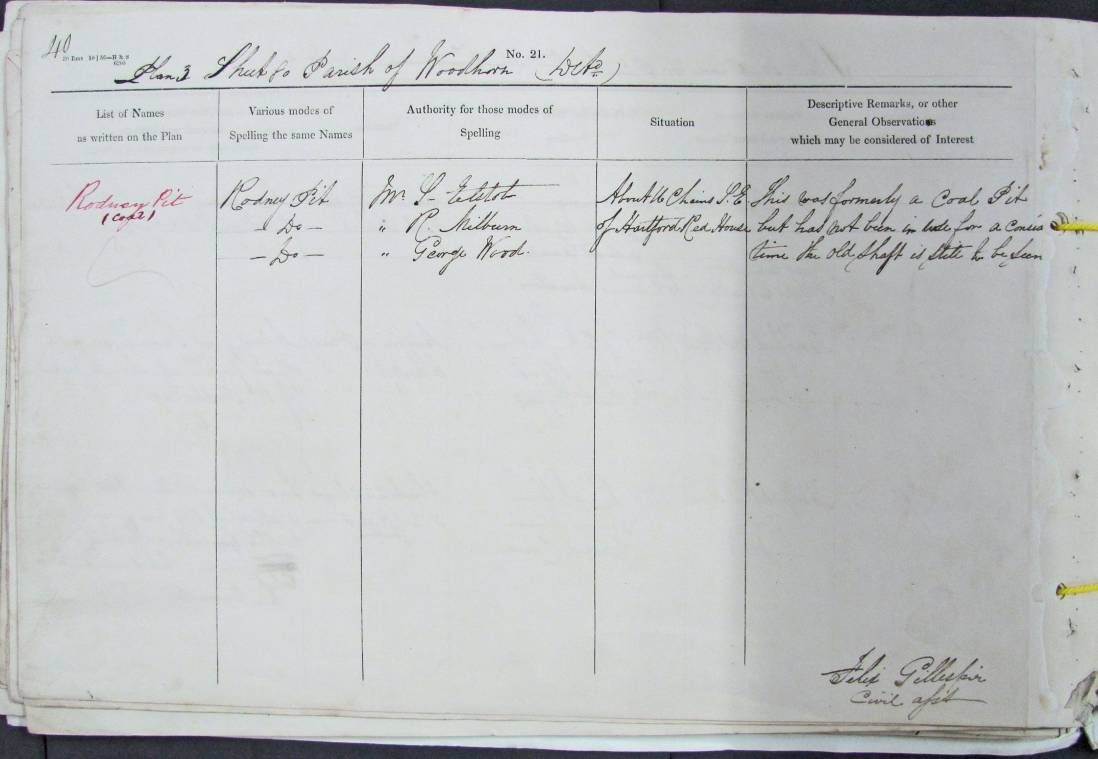 40
No. 21.
Plan 3 Sheet 80 Parish of Woodhorn (Detd.)
List of Names
as written on the Plan
Various modes of
Spelling the same Names
Authority for those modes of
Spelling
Situation
Descriptive Remarks, or other
General Observations
which may be considered of Interest
Rodney Pit
Rodney Pit
Mr S.
About 16 Chains S.E.
This was formerly a Coal Pit
— Do —
" R. Milburn
of Hartford Red House
but has not been in use for a
— Do —
" George Wood.
time the old Shaft is still to be seen
Felix Gillespie
Civil asst